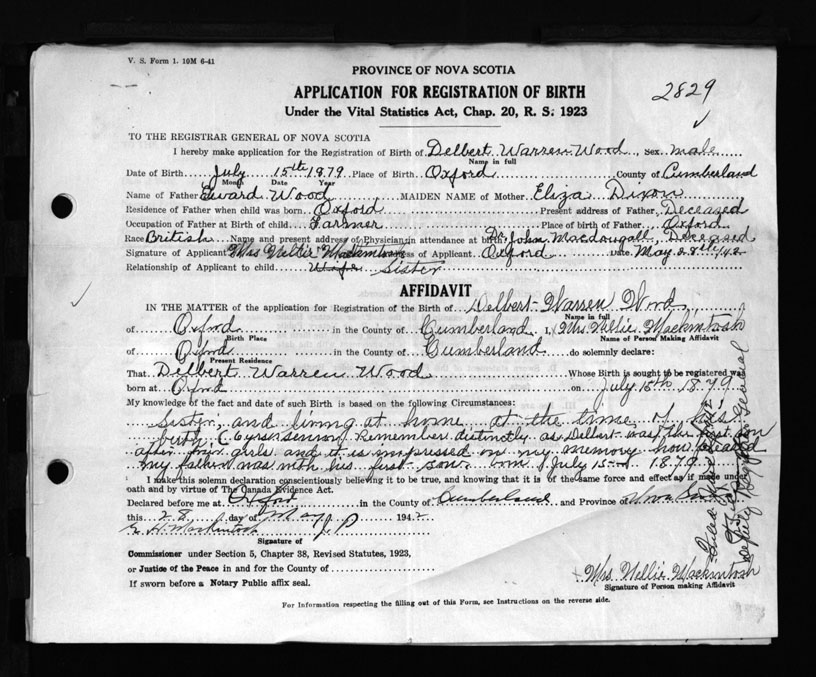 V. S. Form 1. 10M 6-41
PROVINCE OF NOVA SCOTIA
APPLICATION FOR REGISTRATION OF BIRTH
2829
Under the Vital Statistics Act, Chap. 20, R. S. 1923
TO THE REGISTRAR GENERAL OF NOVA SCOTIA
I hereby make application for the Registration of Birth of Delbert Warren Wood, Sex male
Name in full
Date of Birth July 15th 1879 Place of Birth Oxford County of Cumberland
Month Date Year
Name of Father Edward Wood MAIDEN NAME of Mother Eliza Dixon
Residence of Father when child was born Oxford Present address of Father Deceased
Occupation of Father at Birth of child Farmer Place of birth of Father Oxford
Race British Name and present address of Physician in attendance at birth Dr John Macdougall, Deceased
Signature of Applicant Mrs Nellie Mackintosh Address of Applicant Oxford Date May 28th/42
Relationship of Applicant to child Wife Sister
AFFIDAVIT
IN THE MATTER of the application for Registration of the Birth of Delbert Warren Wood
Name in full
of Oxford in the County of Cumberland I, Mrs Nellie Mackintosh
Birth Place Name of Person Making Affidavit
of Oxford in the County of Cumberland do solemnly declare:
Present Residence
That Delbert Warren Wood Whose Birth is sought to be registered was
born at Oxford on July 15th 1879
My knowledge of the fact and date of such Birth is based on the following Circumstances:
Sister, and living at home at the time of his
birth, Remember distinctly as Delbert was the first son
after four girls and it is impressed on my memory how pleased
my father was with his first son, born July 15 1879
I make this solemn declaration conscientiously believing it to be true, and knowing that it is of the same force and effect as if made under
oath and by virtue of The Canada Evidence Act.
Declared before me at Oxford in the County of Cumberland and Province of Nova Scotia
this 28 day of May 1942
E. H. Mackintosh J P
Signature of
Commissioner under Section 5, Chapter 38, Revised Statutes, 1923,
or Justice of the Peace in and for the County of
If sworn before a Notary Public affix seal.
Mrs. Nellie Mackintosh
Signature of Person making Affidavit
Deputy Registrar General
For Information respecting the filling out of this Form, see Instructions on the reverse side.